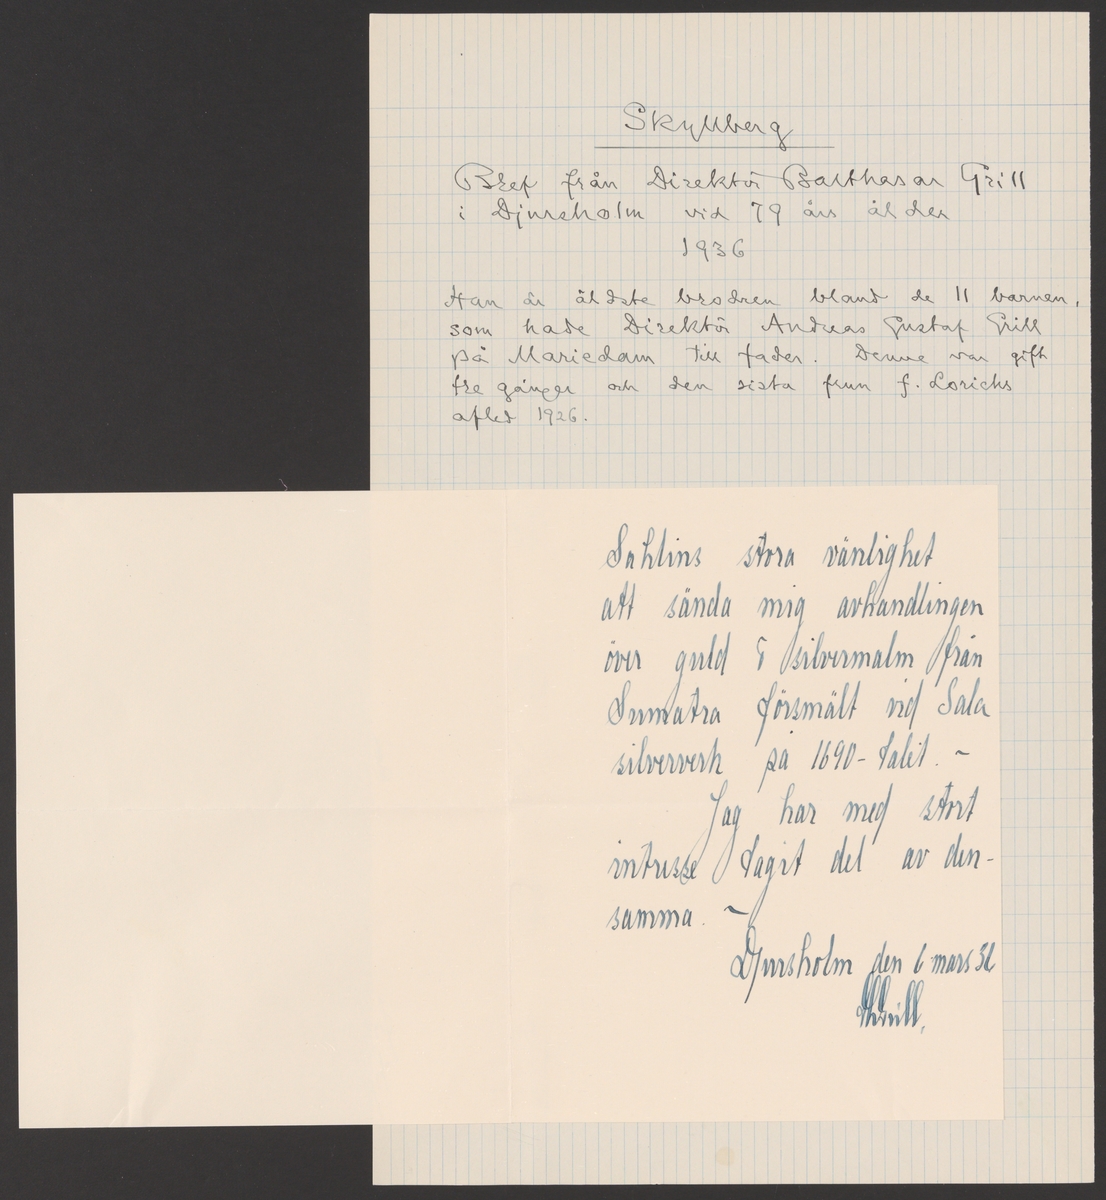 Skyllberg
Bref från Direktör Balthasar Grill
i Djursholm vid 79 års ålder
1936
Han är äldste brodren bland de 11 barnen,
som hade Direktör Andreas Gustaf Grill
på Mariedam till fader. Denne var gift
tre gånger och den sista frun f. Lorichs
afled 1926.
Sahlins stora vänlighet
att sända mig avhandlingen
över guld & silvermalm från
Sumatra försmält vid Sala
silververk på 1690-talet. ~
Jag har med stort
intresse tagit del av den-
samma. ~
Djursholm den 6 mars 36
Grill.